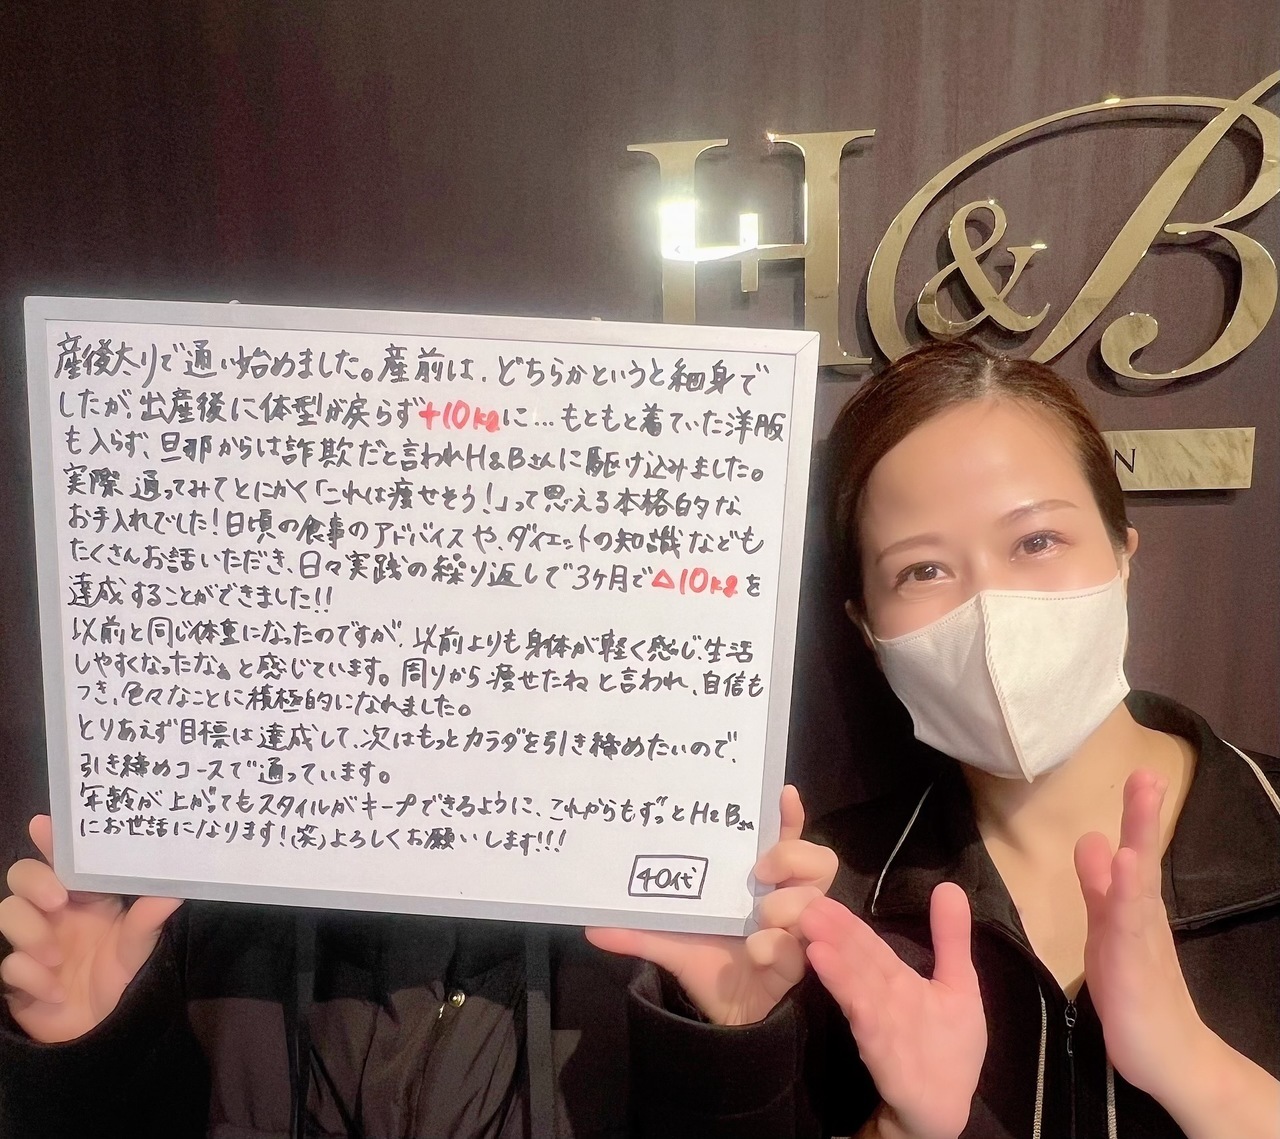 H&B
N
産後太りで通い始めました。産前は、どちらかというと細身で
したが、出産後に体型が戻らず+10kgに…もともと着ていた洋服
も入らず、旦那からは詐欺だと言われH&Bさんに駆け込みました。
実際通ってみてとにかく「これは痩せそう!」って思える本格的な
お手入れでした!日頃の食事のアドバイスや、ダイエットの知識なども
たくさんお話いただき、日々実践の繰り返しで3ヶ月で△10kgを
達成することができました!!
以前と同じ体重になったのですが、以前よりも身体が軽く感じ、生活
しやすくなったなぁと感じています。周りから痩せたねと言われ、自信も
つき、色々なことに積極的になれました。
とりあえず目標は達成して、次はもっとカラダを引き締めたいので、
引き締めコースで通っています。
年齢が上がってもスタイルがキープできるように、これからもずっとH&Bさん
にお世話になります!(笑)よろしくお願いします!!!
40代